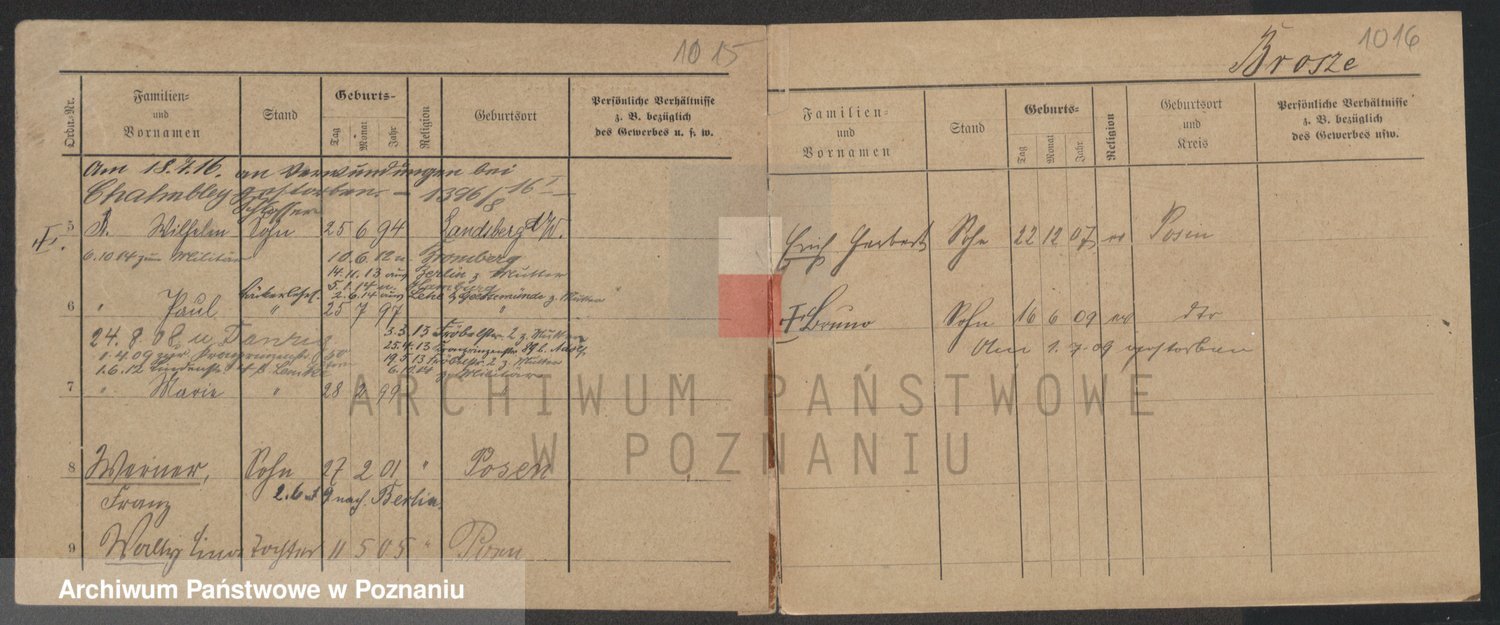 1015
Ordn.-Nr.
Familien-
und
Vornamen
Stand
Geburts-
Tag
Monat
Jahr
Religion
Geburtsort
Persönliche Verhältnisse
z. B. bezüglich
des Gewerbes u. s. w.
Am 18.7.16. an Verwundungen bei
gestorben. – 1396/8 16 I
Schlosser
5 Wilhelm Sohn 25 6 94 Landsberg a/W.
6.10.14 zum Militär 10.6. Bromberg
14.11.13 aus Berlin z Mutter
5.1.14 n. Hamburg
2.6.14 aus Lehe b Geestemünde z. Mutter
6 " Paul " 25 7 97 "
24.8.08 n Danzig 3.3.13 Fröbelstr. 2 z. Mutter
1.4.09 zur 25.4.13
1.6.12 Lindenstr. 19.5.13 Fröbelstr. 2 z. Mutter
6.10.14 z. Militär
7 " Marie " 28 2 99 "
8 Werner, Sohn 27 2 01 " Posen
Franz 2.6.19 nach Berlin
9 Wally Lina Tochter 11 5 05 " Posen
1016
Brosze
Familien-
und
Vornamen
Stand
Geburts-
Tag
Monat
Jahr
Religion
Geburtsort
und
Kreis
Persönliche Verhältnisse
z. B. bezüglich
des Gewerbes usw.
Erich Herbert Sohn 22 12 07 ev Posen
Bruno Sohn 16 6 09 ev dto
Am 1.7.09 gestorben
ARCHIWUM PAŃSTWOWE
W POZNANIU
Archiwum Państwowe w Poznaniu